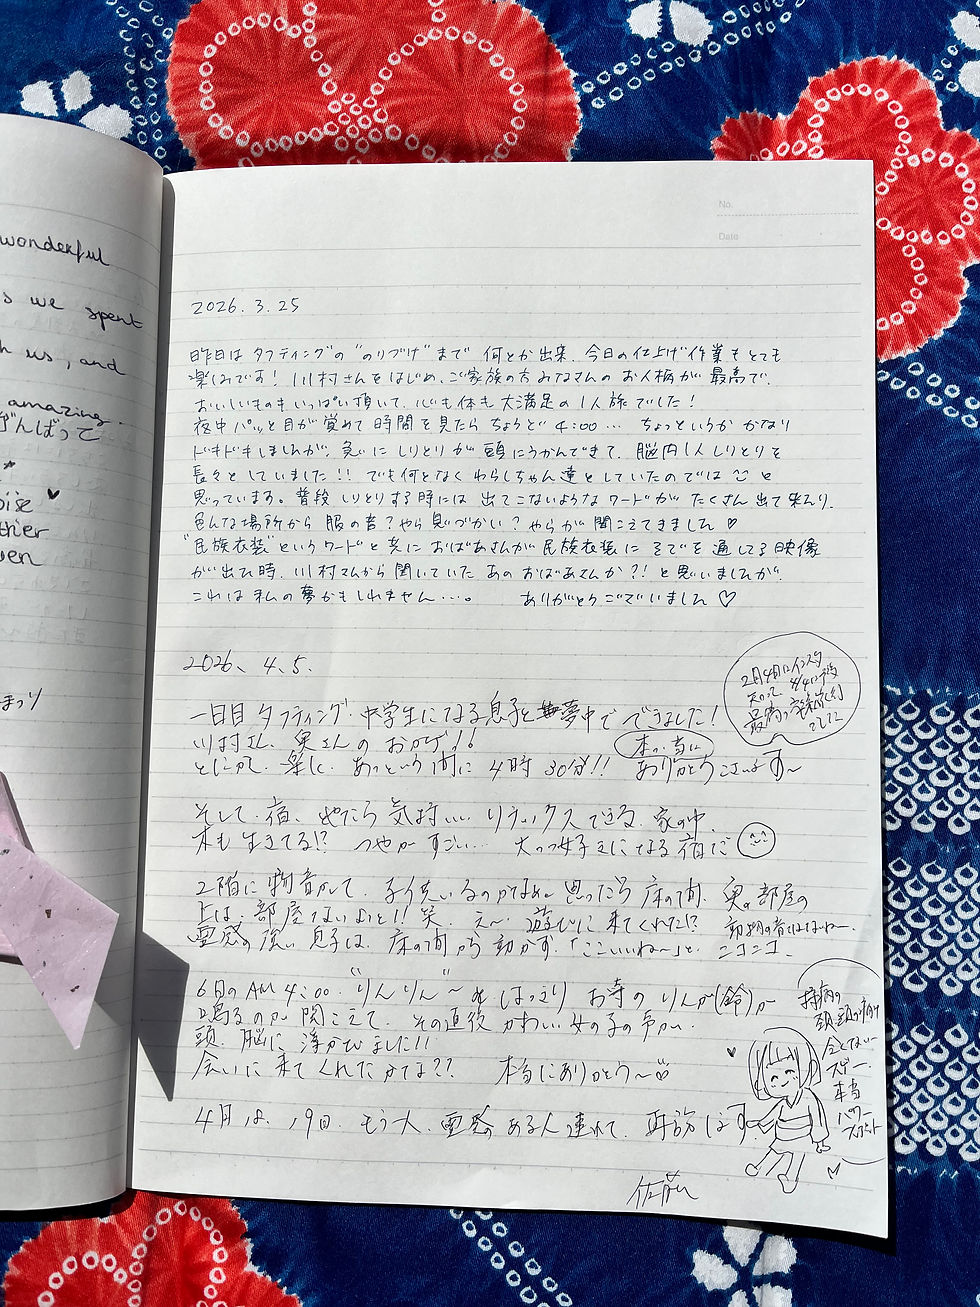 wonderful
s we spent
h us, and
amazing.
がんばって
oise
thier
ven
まつり
No.
Date
2026.3.25
昨日は タフティングの“のりづけ”まで 何とか出来、今日の仕上げ作業もとても
楽しみです! 川村さんをはじめ、ご家族の方みなさんの お人柄が 最高で、
おいしいものもいっぱい頂いて、心も体も 大満足の1人旅でした!
夜中 パッと目が覚めて 時間を見たら ちょうど 4:00… ちょっというか かなり
ドキドキしましたが、急に しりとりが 頭にうかんできて、脳内1人しりとりを
長々と していました!! でも何となく わらしちゃん達と していたのでは と
思っています。普段 しりとりする時には 出てこないような ワードが たくさん出て来たり、
色んな場所から 服の音?やら 息づかい?やらが 聞こえてきました♡
“民族衣装”というワードと共に おばあさんが 民族衣装に そでを通してる映像
が出た時、川村さんから聞いていた あの おばあさんか?! と思いましたが、
これは 私の夢かもしれません…。 ありがとうございました♡
2026、4、5.
一日目 タフティング、中学生になる息子と 夢中で できました!
川村さん、奥さんの おかげ!!
とにかく 楽しく、あっという間に 4時30分!! 本当に ありがとうございます〜
2月4日にインスタ
知って
最高の
そして、宿、やたら 気持いい リラックスできる、家の中、
木も生きてる!? つやが すごい… 大の女子
2階に物音がして、子供いるのかなぁ〜 思ったら 床の間、奥の部屋の
上は、部屋はないよと!! 笑、え〜 遊びに来てくれた!? 動物の音ではないねー、
霊感の強い 息子は、床の間から動かず、「ここいいね〜」と、ニコニコ、
6日のAM 4:00、“りんりん〜”と はっきり お寺の りんか(鈴)が
鳴るのが 聞こえて、その直後 かわいい女の子の声が、
頭、脳に 浮かびました!!
会いに来てくれたかな?? 本当にありがとう〜♡
持病の
本当
パワー
スポット
4月18、19日、もう1人、霊感のある人連れて、再訪します